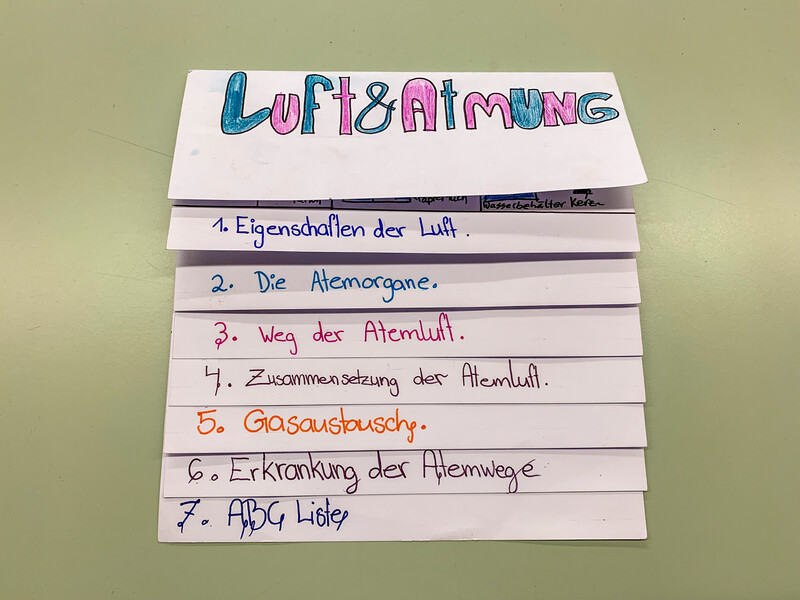 Luft & Atmung
Wasserbehälter
1. Eigenschaften der Luft.
2. Die Atemorgane.
3. Weg der Atemluft.
4. Zusammensetzung der Atemluft.
5. Gasaustausch.
6. Erkrankung der Atemwege
7. ABC Liste